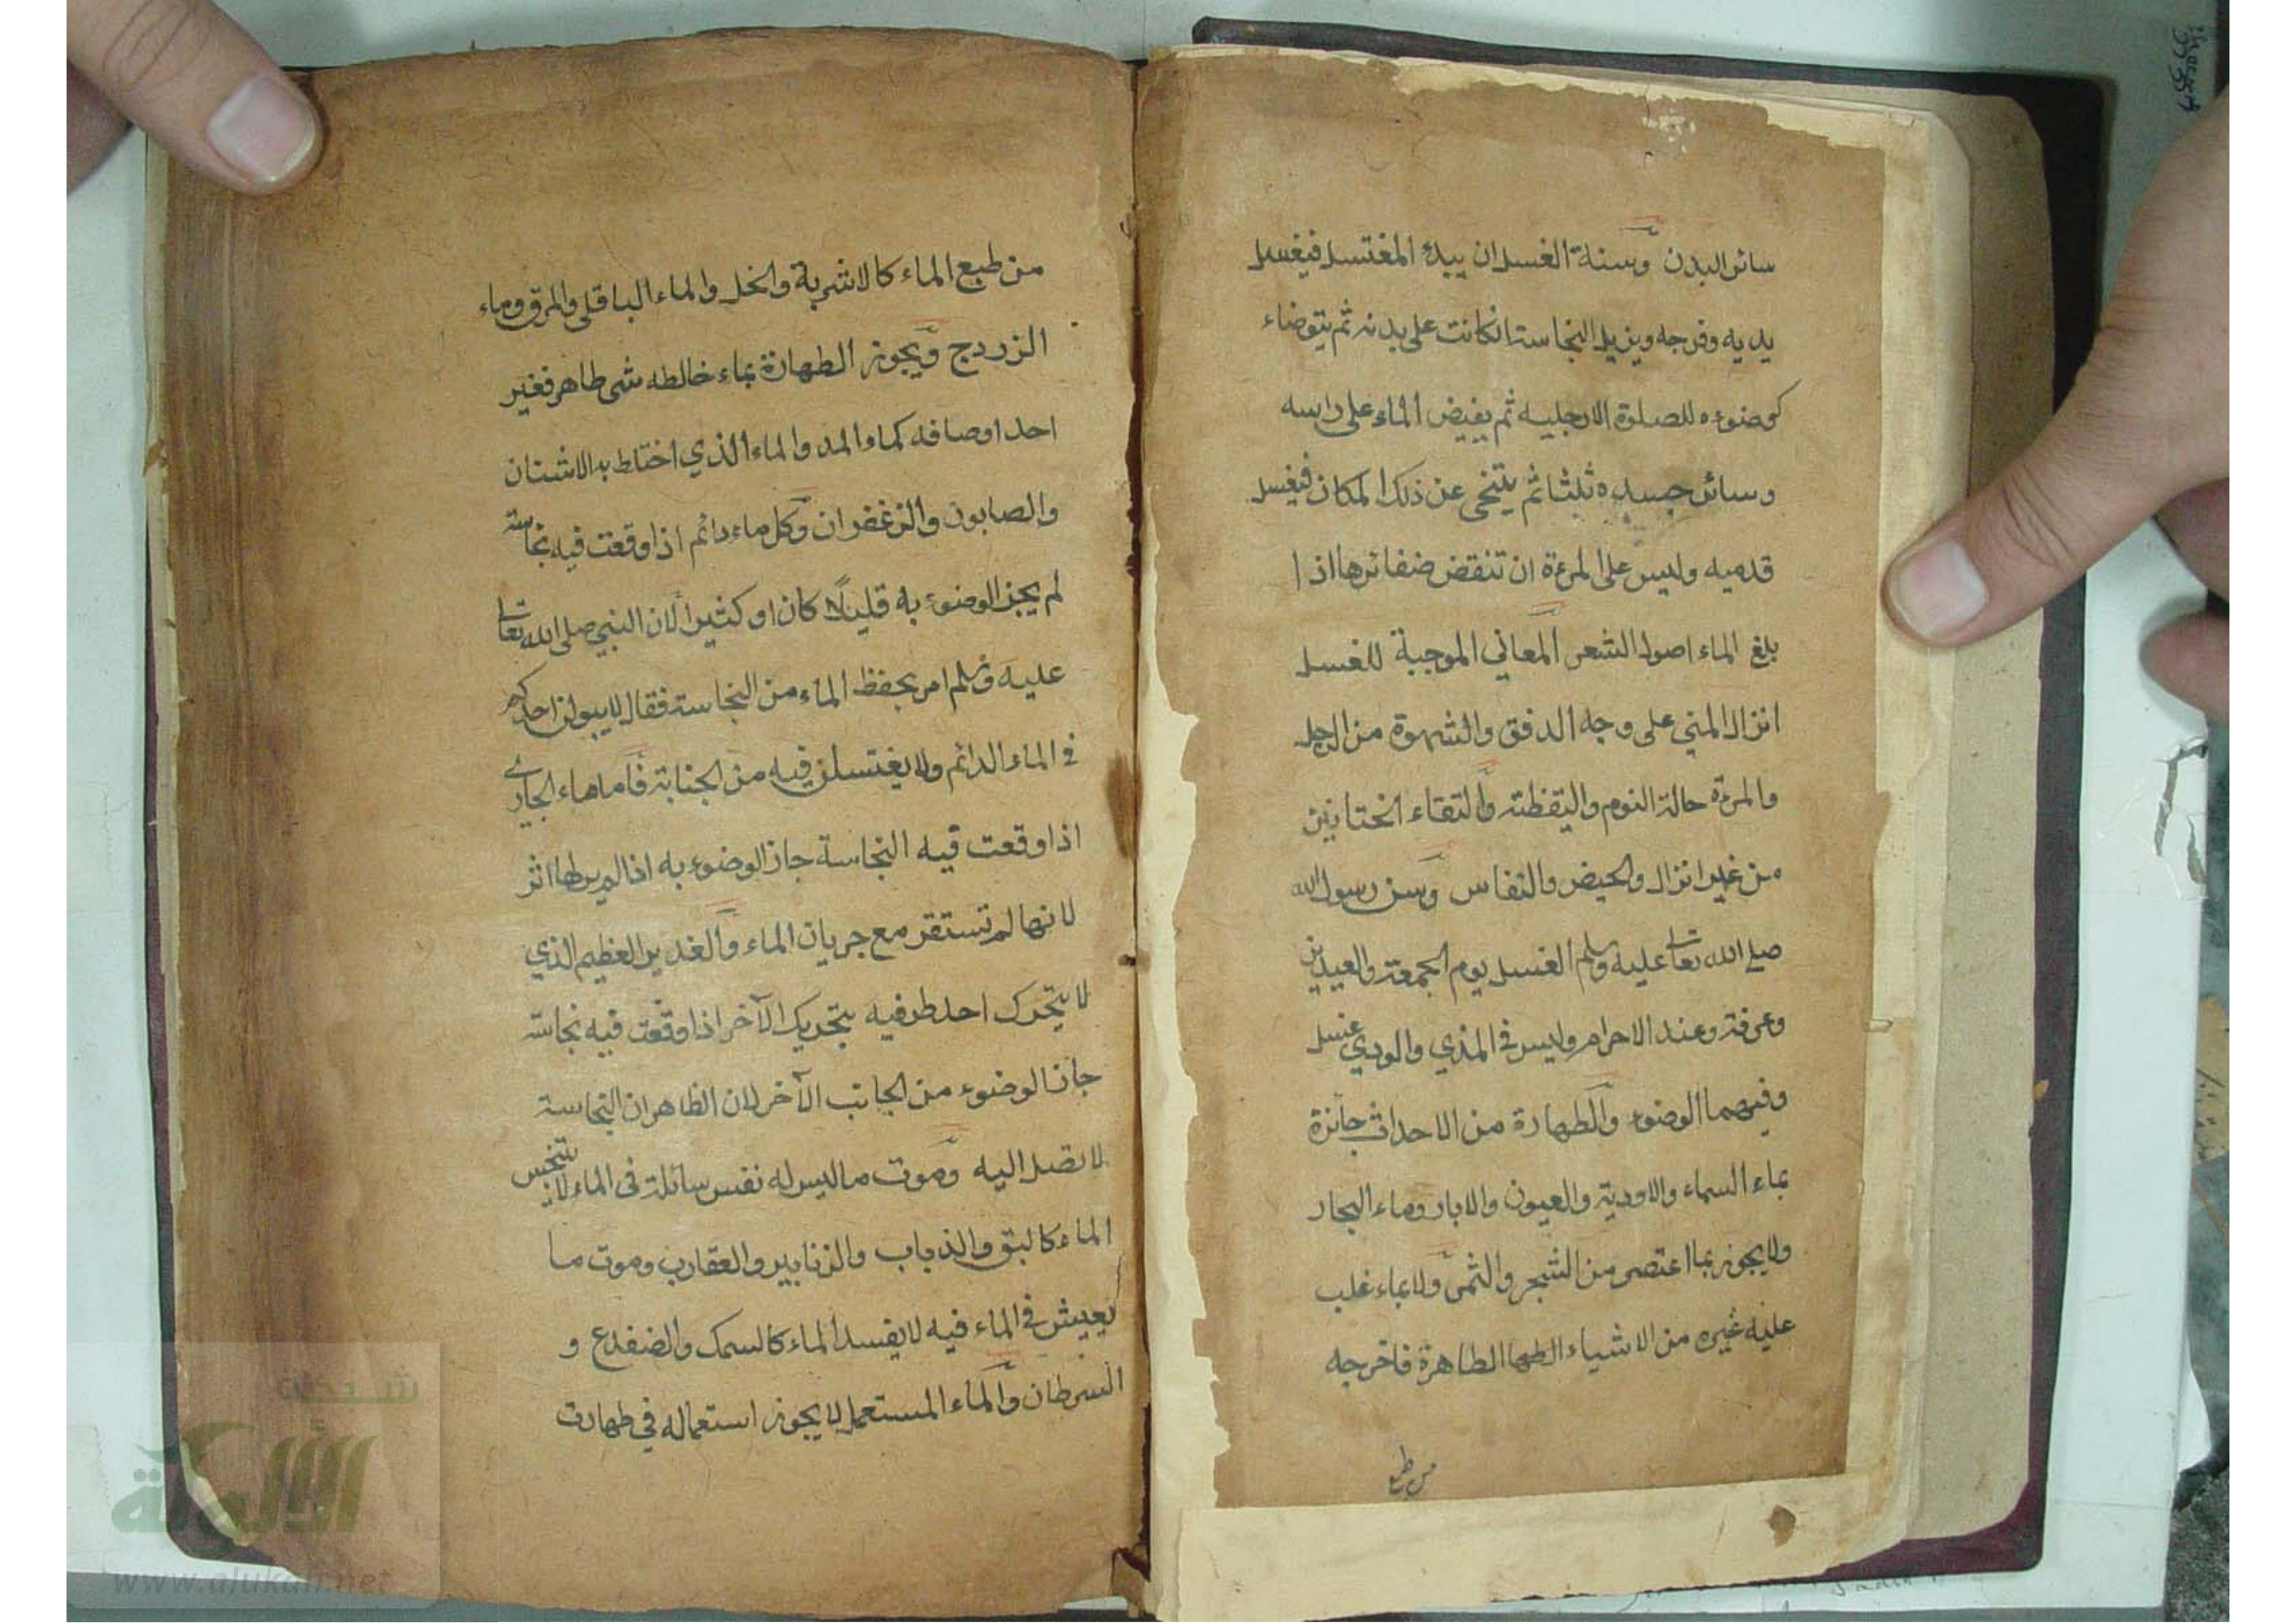 سائر البدن وسنة الغسل ان يبدء المغتسل فيغسل
يديه وفرجه ويزيل النجاسة انكانت على بدنه ثم يتوضاء
كوضوءه للصلوة الا رجليه ثم يفيض الماء على راسه
وسائر جسده ثلثا ثم يتنحى عن ذلك المكان فيغسل
قدميه وليس على المرءة ان تنقض ضفائرها اذا
بلغ الماء اصول الشعر المعاني الموجبة للغسل
انزال المني على وجه الدفق والشهوة من الرجل
والمرءة حالة النوم واليقظة والتقاء الختانين
من غير انزال والحيض والنفاس وسن رسول الله
صلى الله تعا عليه وسلم الغسل يوم الجمعة والعيدين
وعرفة وعند الاحرام وليس في المذي والودي غسل
وفيهما الوضوء والطهارة من الاحداث جائزة
بماء السماء والاودية والعيون والابار وماء البحار
ولا يجوز بما اعتصر من الشجر والثمر ولا بماء غلب
عليه غيره من الاشياء الطها الطاهرة فاخرجه
من طبع
من طبع الماء كالاشربة والخل والماء الباقلى والمرق وماء
الزردج ويجوز الطهارة بماء خالطه شى طاهر فغير
احد اوصافه كماء المد والماء الذي اختلط به الاشنان
والصابون والزعفران وكل ماء دائم اذا وقعت فيه نجاسة
لم يجز الوضوء به قليلًا كان او كثيرا لان النبي صلى الله تعا
عليه وسلم امر بحفظ الماء من النجاسة فقال لا يبولن احدكم
في الماء الدائم ولا يغتسلن فيه من الجنابة فاما ماء الجاري
اذا وقعت فيه النجاسة جاز الوضوء به اذا لم ير لها اثر
لانها لم تستقر مع جريان الماء والغدير العظيم الذي
لا يتحرك احد طرفيه بتحريك الآخر اذا وقعت فيه نجاسة
جاز الوضوء من الجانب الآخر لان الظاهر ان النجاسة
لا تصل اليه وموت ما ليس له نفس سائلة فى الماء لا يتنجس
الماء كالبق والذباب والزنابير والعقارب وموت ما
يعيش في الماء فيه لا يفسد الماء كالسمك والضفدع و
السرطان والماء المستعمل لا يجوز استعماله في طهارت
شبكة
الألوكة
www.alukah.net